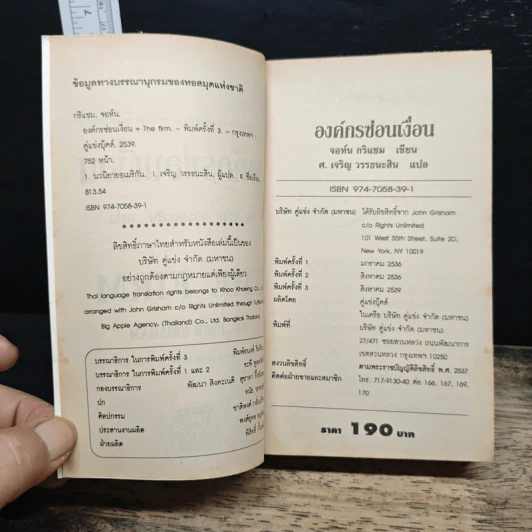 ข้อมูลทางบรรณานุกรมของหอสมุดแห่งชาติ
กริแชม, จอห์น.
องค์กรซ่อนเงื่อน = The firm. - พิมพ์ครั้งที่ 3. - กรุงเทพฯ
คู่แข่งบุ๊คส์, 2539.
752 หน้า.
1. นวนิยายอเมริกัน. I. เจริญ วรรธนะสิน, ผู้แปล. II. ชื่อเรื่อง
813.54
ISBN 974-7058-39-1
ลิขสิทธิ์ภาษาไทยสำหรับหนังสือเล่มนี้เป็นของ
บริษัท คู่แข่ง จำกัด (มหาชน)
อย่างถูกต้องตามกฎหมายแต่เพียงผู้เดียว
Thai language translation rights belongs to Khoo Khaeng Co.,
arranged with John Grisham c/o Rights Unlimited through
Big Apple Agency, (Thailand) Co., Ltd. Bangkok Thailand.
บรรณาธิการ ในการพิมพ์ครั้งที่ 3
บรรณาธิการ ในการพิมพ์ครั้งที่ 1 และ 2
กองบรรณาธิการ พัฒนา สิงคะเนติ
ปก
ศิลปกรรม
ประสานงานผลิต
ฝ่ายผลิต
องค์กรซ่อนเงื่อน
จอห์น กริแชม เขียน
ศ. เจริญ วรรธนะสิน แปล
ISBN 974-7058-39-1
บริษัท คู่แข่ง จำกัด (มหาชน) ได้รับลิขสิทธิ์จาก John Grisham
c/o Rights Unlimited
101 West 55th Street, Suite 2D,
New York, NY 10019
พิมพ์ครั้งที่ 1 มกราคม 2536
พิมพ์ครั้งที่ 2 สิงหาคม 2536
พิมพ์ครั้งที่ 3 สิงหาคม 2539
ผลิตโดย คู่แข่งบุ๊คส์
ในเครือ บริษัท คู่แข่ง จำกัด (มหาชน)
พิมพ์ที่ บริษัท คู่แข่ง จำกัด (มหาชน)
27/471 ซอยสวนหลวง ถนนพัฒนาการ
เขตสวนหลวง กรุงเทพฯ 10250
สงวนลิขสิทธิ์ ตามพระราชบัญญัติลิขสิทธิ์ พ.ศ. 2537
ติดต่อฝ่ายขายและสมาชิก โทร. 717-9130-40 ต่อ 166, 167, 169,
170
ราคา 190 บาท